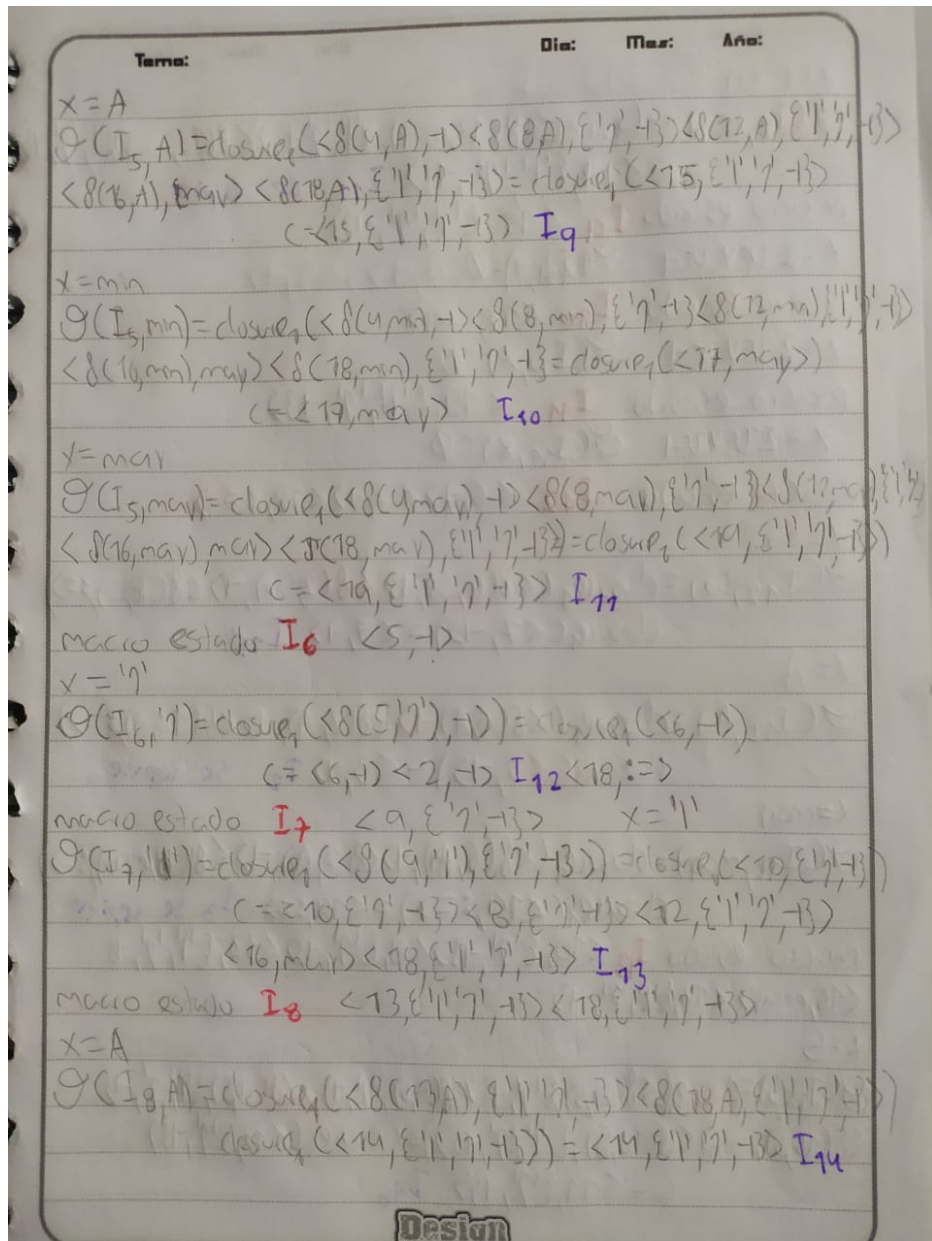 Tema: Dia: Mes: Año:
x=A
𝒪(I₅,A)=closure₁(<δ(4,A),⊣><δ(8,A),{'?',⊣}><δ(12,A),{'|','?',⊣}>
<δ(16,A),may><δ(18,A),{'|','?',⊣}>=closure₁(<15,{'|','?',⊣}>
C=<15,{'|','?',⊣}> I₉
x=min
𝒪(I₅,min)=closure₁(<δ(4,min),⊣><δ(8,min),{'?',⊣}<δ(12,min),{'|','?',⊣}>
<δ(16,min),may><δ(18,min),{'|','?',⊣}=closure₁(<17,may>)
C=<17,may> I₁₀
x=may
𝒪(I₅,may)=closure₁(<δ(4,may),⊣><δ(8,may),{'?',⊣}<δ(12,may),{'|','?',
<δ(16,may),may><δ(18,may),{'|','?',⊣}>)=closure₁(<19,{'|','?',⊣}>)
C=<19,{'|','?',⊣}> I₁₁
macro estado I₆ <5,⊣>
x='?'
𝒪(I₆,'?')=closure₁(<δ(5,'?'),⊣>)=closure₁(<6,⊣>)
C=<6,⊣><2,⊣> I₁₂<18,:=>
macro estado I₇ <9,{'?',⊣}> x='|'
𝒪(I₇,'|')=closure₁(<δ(9,'|'),{'?',⊣}>)=closure₁(<10,{'?',⊣})
C=<10,{'?',⊣}><8,{'?',⊣}><12,{'|','?',⊣}>
<16,may><18,{'|','?',⊣}> I₁₃
macro estado I₈ <13,{'|','?',⊣}><18,{'|','?',⊣}>
x=A
𝒪(I₈,A)=closure₁(<δ(13,A),{'|','?',⊣}><δ(18,A),{'|','?',⊣})
closure₁(<14,{'|','?',⊣}>)=<14,{'|','?',⊣}> I₁₄
Design